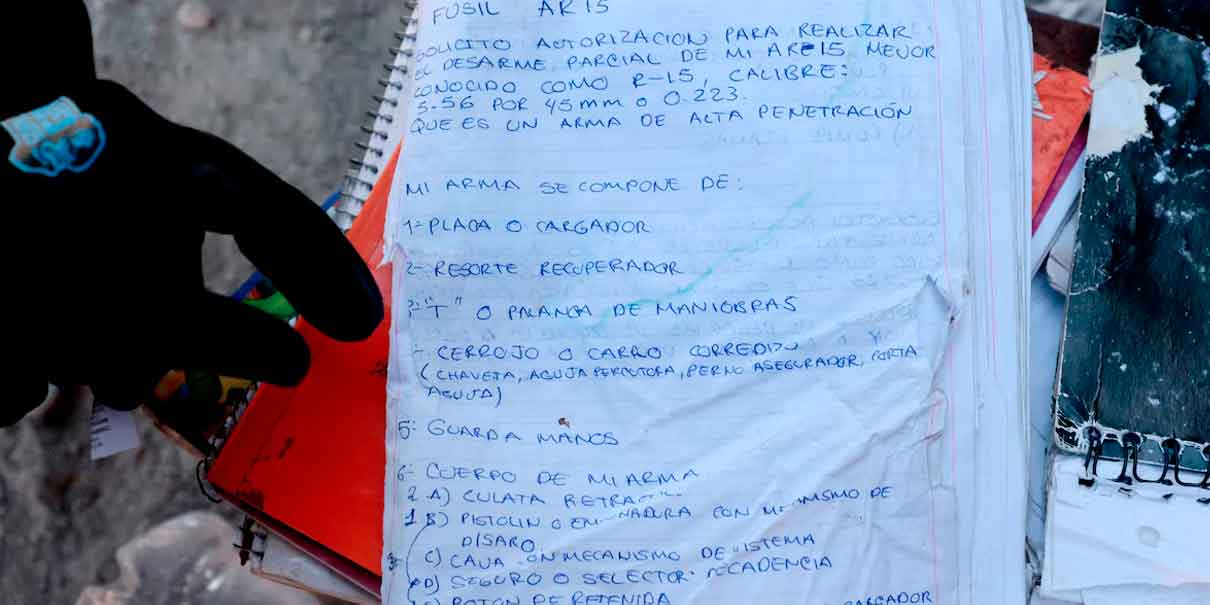 FUSIL AR15
SOLICITO AUTORIZACION PARA REALIZAR
EL DESARME PARCIAL DE MI AR-15 MEJOR
CONOCIDO COMO R-15, CALIBRE:
5.56 POR 45 mm o 0.223.
QUE ES UN ARMA DE ALTA PENETRACIÓN
MI ARMA SE COMPONE DE:
1- PLACA O CARGADOR
2- RESORTE RECUPERADOR
3- "T" O PALANCA DE MANIOBRAS
- CERROJO O CARRO CORREDIZO Y
(CHAVETA, AGUJA PERCUTORA, PERNO ASEGURADOR, PORTA
AGUJA)
5- GUARDA MANOS
6- CUERPO DE MI ARMA
2 A) CULATA
1 B) PISTOLIN O CON DE
DISARO
C) CAJA MECANISMO DE
D) SEGURO O SELECTOR CADENCIA
BOTON DE RETENIDA CARGADOR